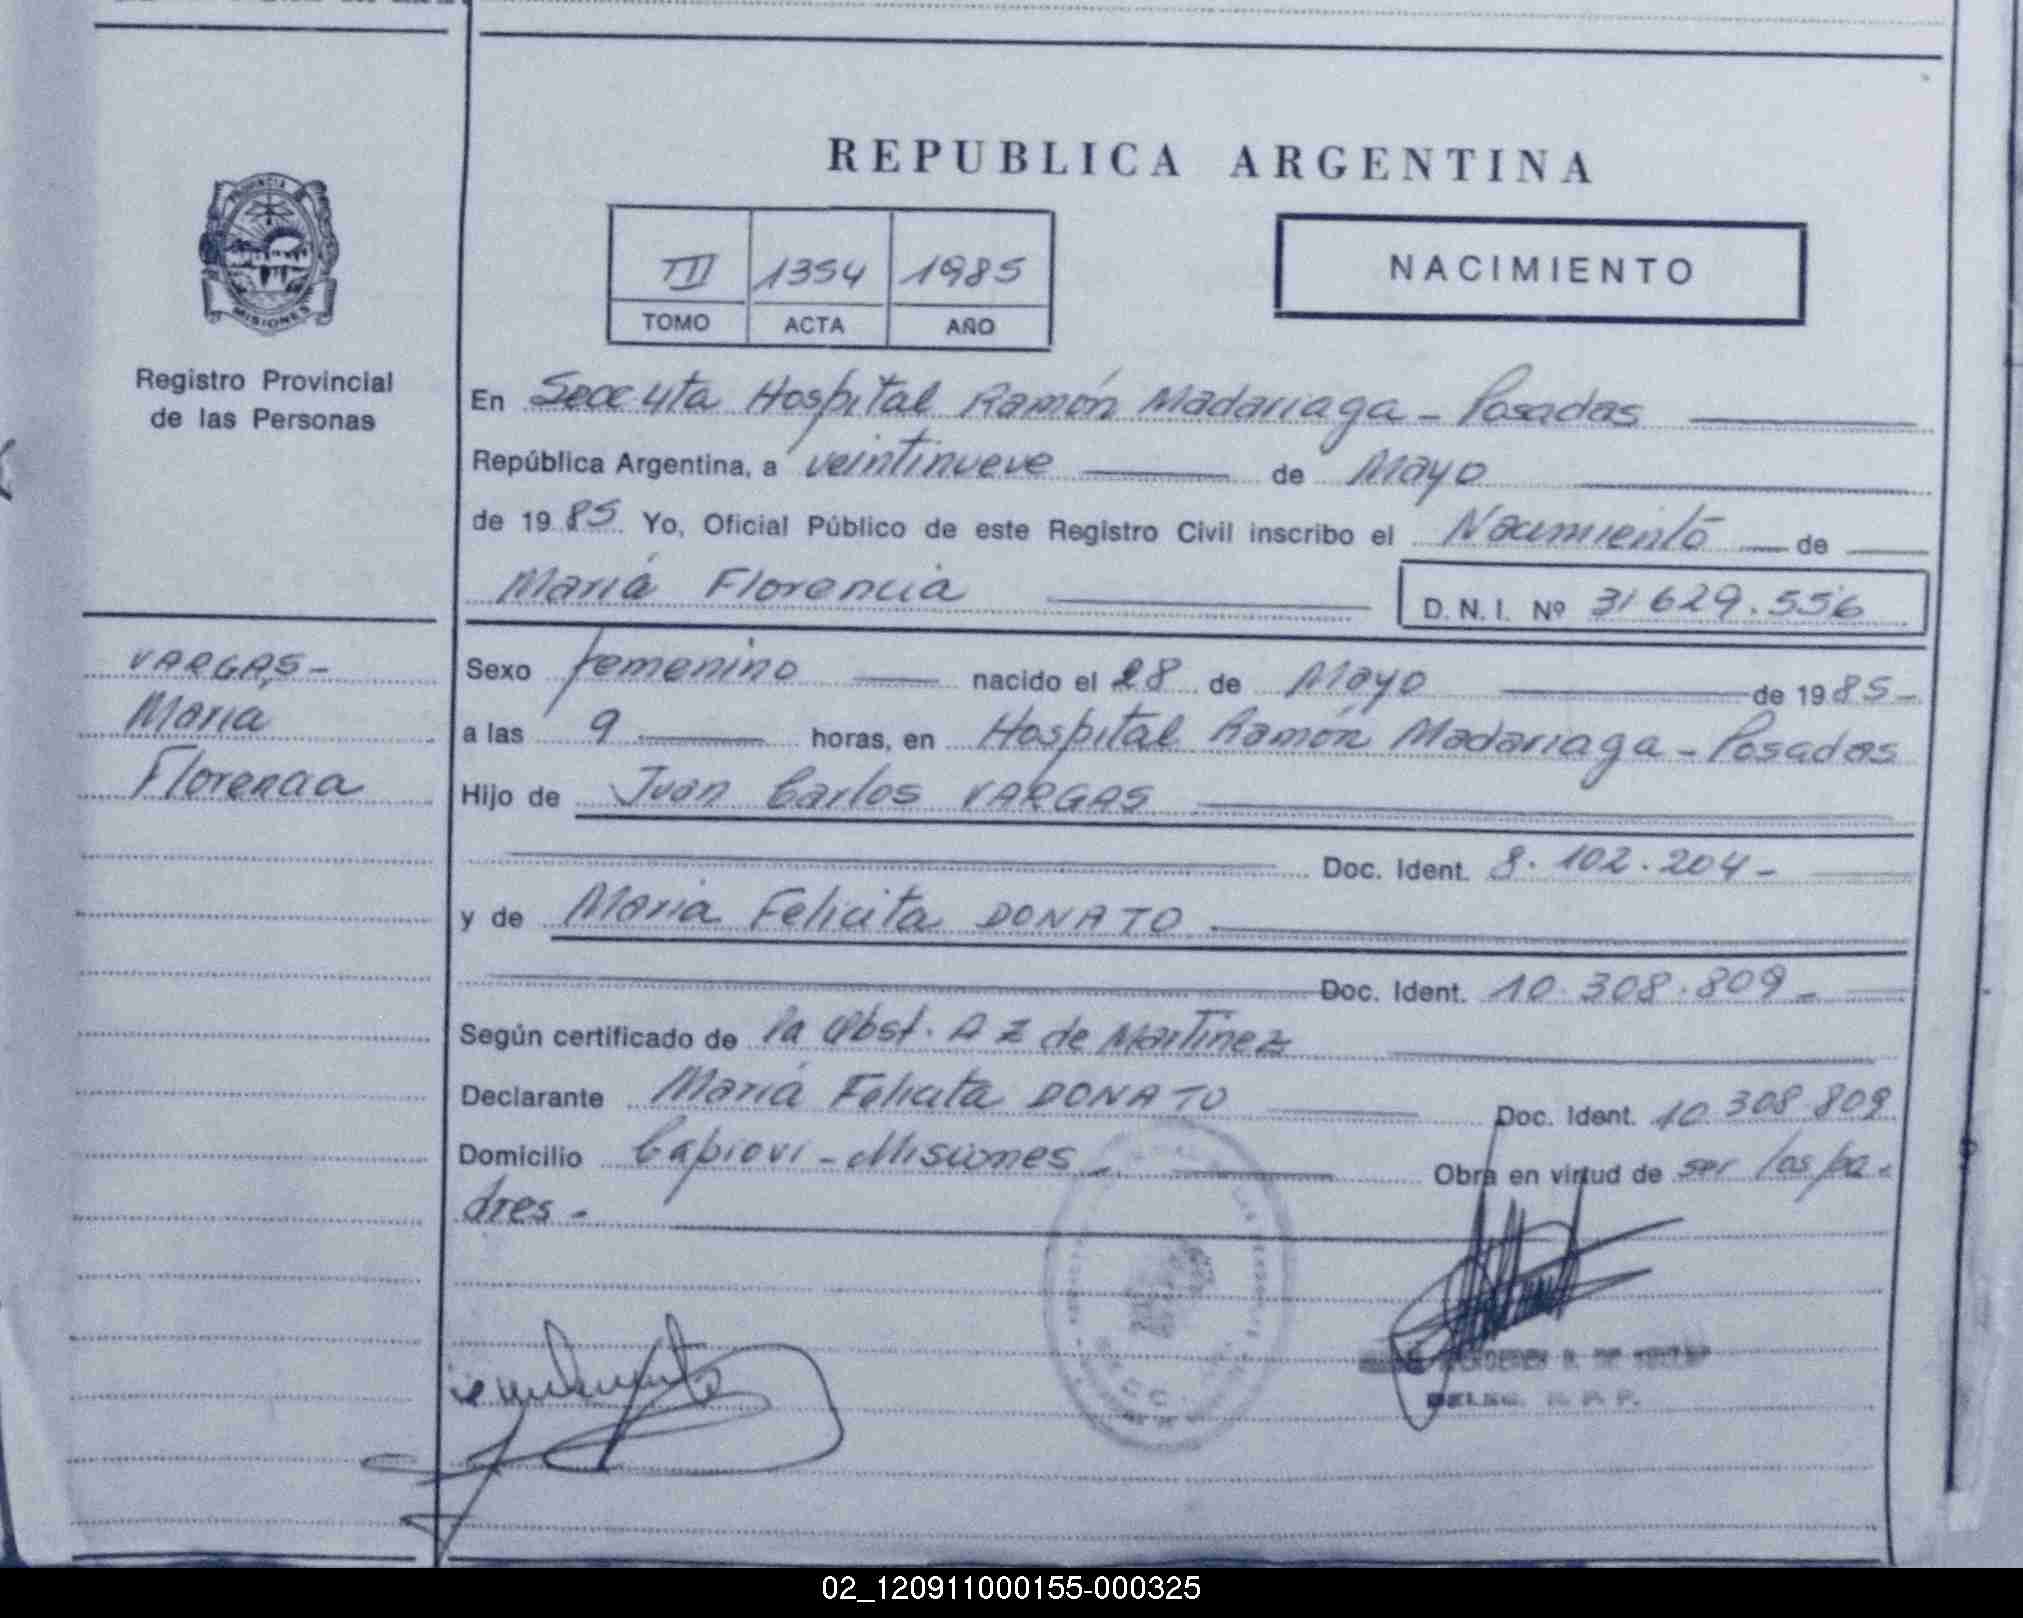 REPUBLICA ARGENTINA
PROVINCIA
MISIONES
Registro Provincial
de las Personas
III 1354 1985
TOMO ACTA AÑO
NACIMIENTO
En Secc 4ta Hospital Ramón Madariaga - Posadas
República Argentina, a veintinueve de Mayo
de 1985 Yo, Oficial Público de este Registro Civil inscribo el Nacimiento de
María Florencia D. N. I. Nº 31629.556
VARGAS -
María
Florencia
Sexo femenino nacido el 28 de Mayo de 1985 -
a las 9 horas, en Hospital Ramón Madariaga - Posadas
Hijo de Juan Carlos VARGAS
Doc. Ident. 8.102.204 -
y de María Felicita DONATO
Doc. Ident. 10.308.809 -
Según certificado de la Obst. A Z de Martinez
Declarante María Felicita DONATO Doc. Ident. 10.308.809
Domicilio Capiovi - Misiones - Obra en virtud de ser los pa-
dres -
DELEG. R. P. P.
02_120911000155-000325